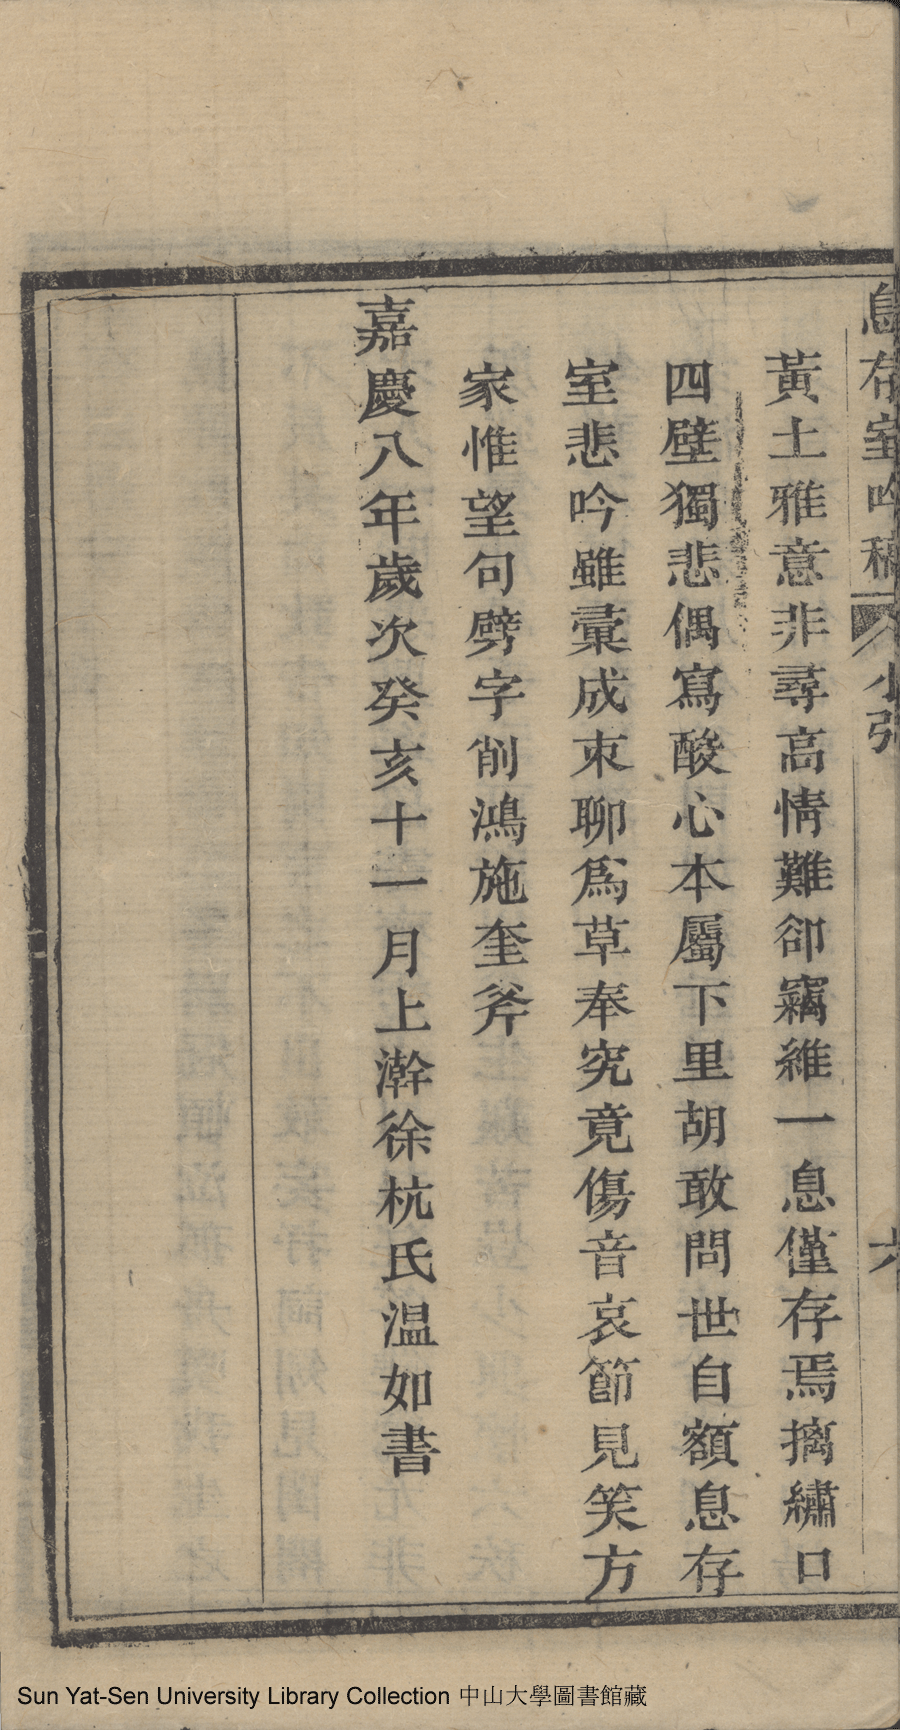 息存室吟稿 小引 六
黃土雅意非尋高情難卻竊維一息僅存焉摛繡口
四壁獨悲偶寫酸心本屬下里胡敢問世自額息存
室悲吟雖彙成朿聊爲草奉究竟傷音哀節見笑方
家惟望句劈字削鴻施奎斧
嘉慶八年歲次癸亥十一月上澣徐杭氏温如書
Sun Yat-Sen University Library Collection 中山大學圖書館藏